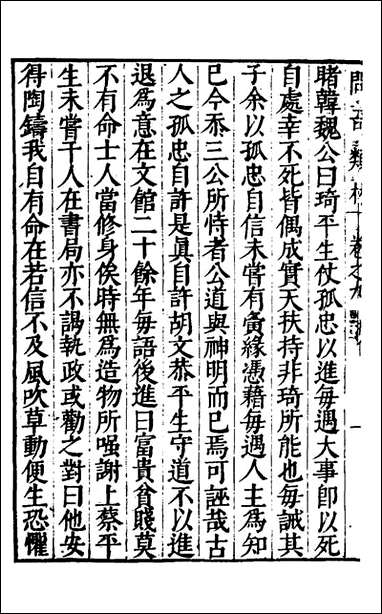 睹韓魏公曰琦平生仗孤忠以進毎遇大事卽以死
自處幸不死皆偶成實天扶持非琦所能也毎誡其
子余以孤忠自信未嘗有夤緣憑藉毎遇人主爲知
巳今忝三公所恃者公道與神明而巳焉可誣哉古
人之孤忠自許是眞自許胡文恭平生守道不以進
退爲意在文館二十餘年毎語後進曰富貴貧賤莫
不有命士人當修身俟時無爲造物所嗤謝上蔡平
生未嘗干人在書局亦不謁執政或勸之對曰他安
得陶鑄我自有命在若信不及風吹草動便生恐懼